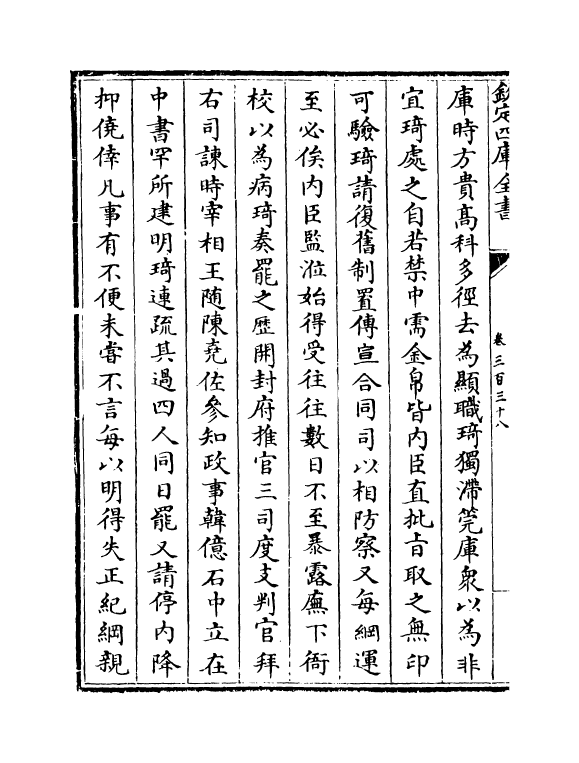 欽定四庫全書
卷三百三十八
庫時方貴髙科多徑去為顯職琦獨滯筦庫衆以為非
宜琦處之自若禁中需金帛皆内臣直批㫖取之無印
可驗琦請復舊制置傳宣合同司以相防察又每綱運
至必俟内臣監涖始得受往往數日不至暴露廡下衙
校以為病琦奏罷之歴開封府推官三司度支判官拜
右司諫時宰相王随陳堯佐參知政事韓億石中立在
中書罕所建明琦連疏其過四人同日罷又請停内降
抑僥倖凡事有不便未嘗不言每以明得失正紀綱親